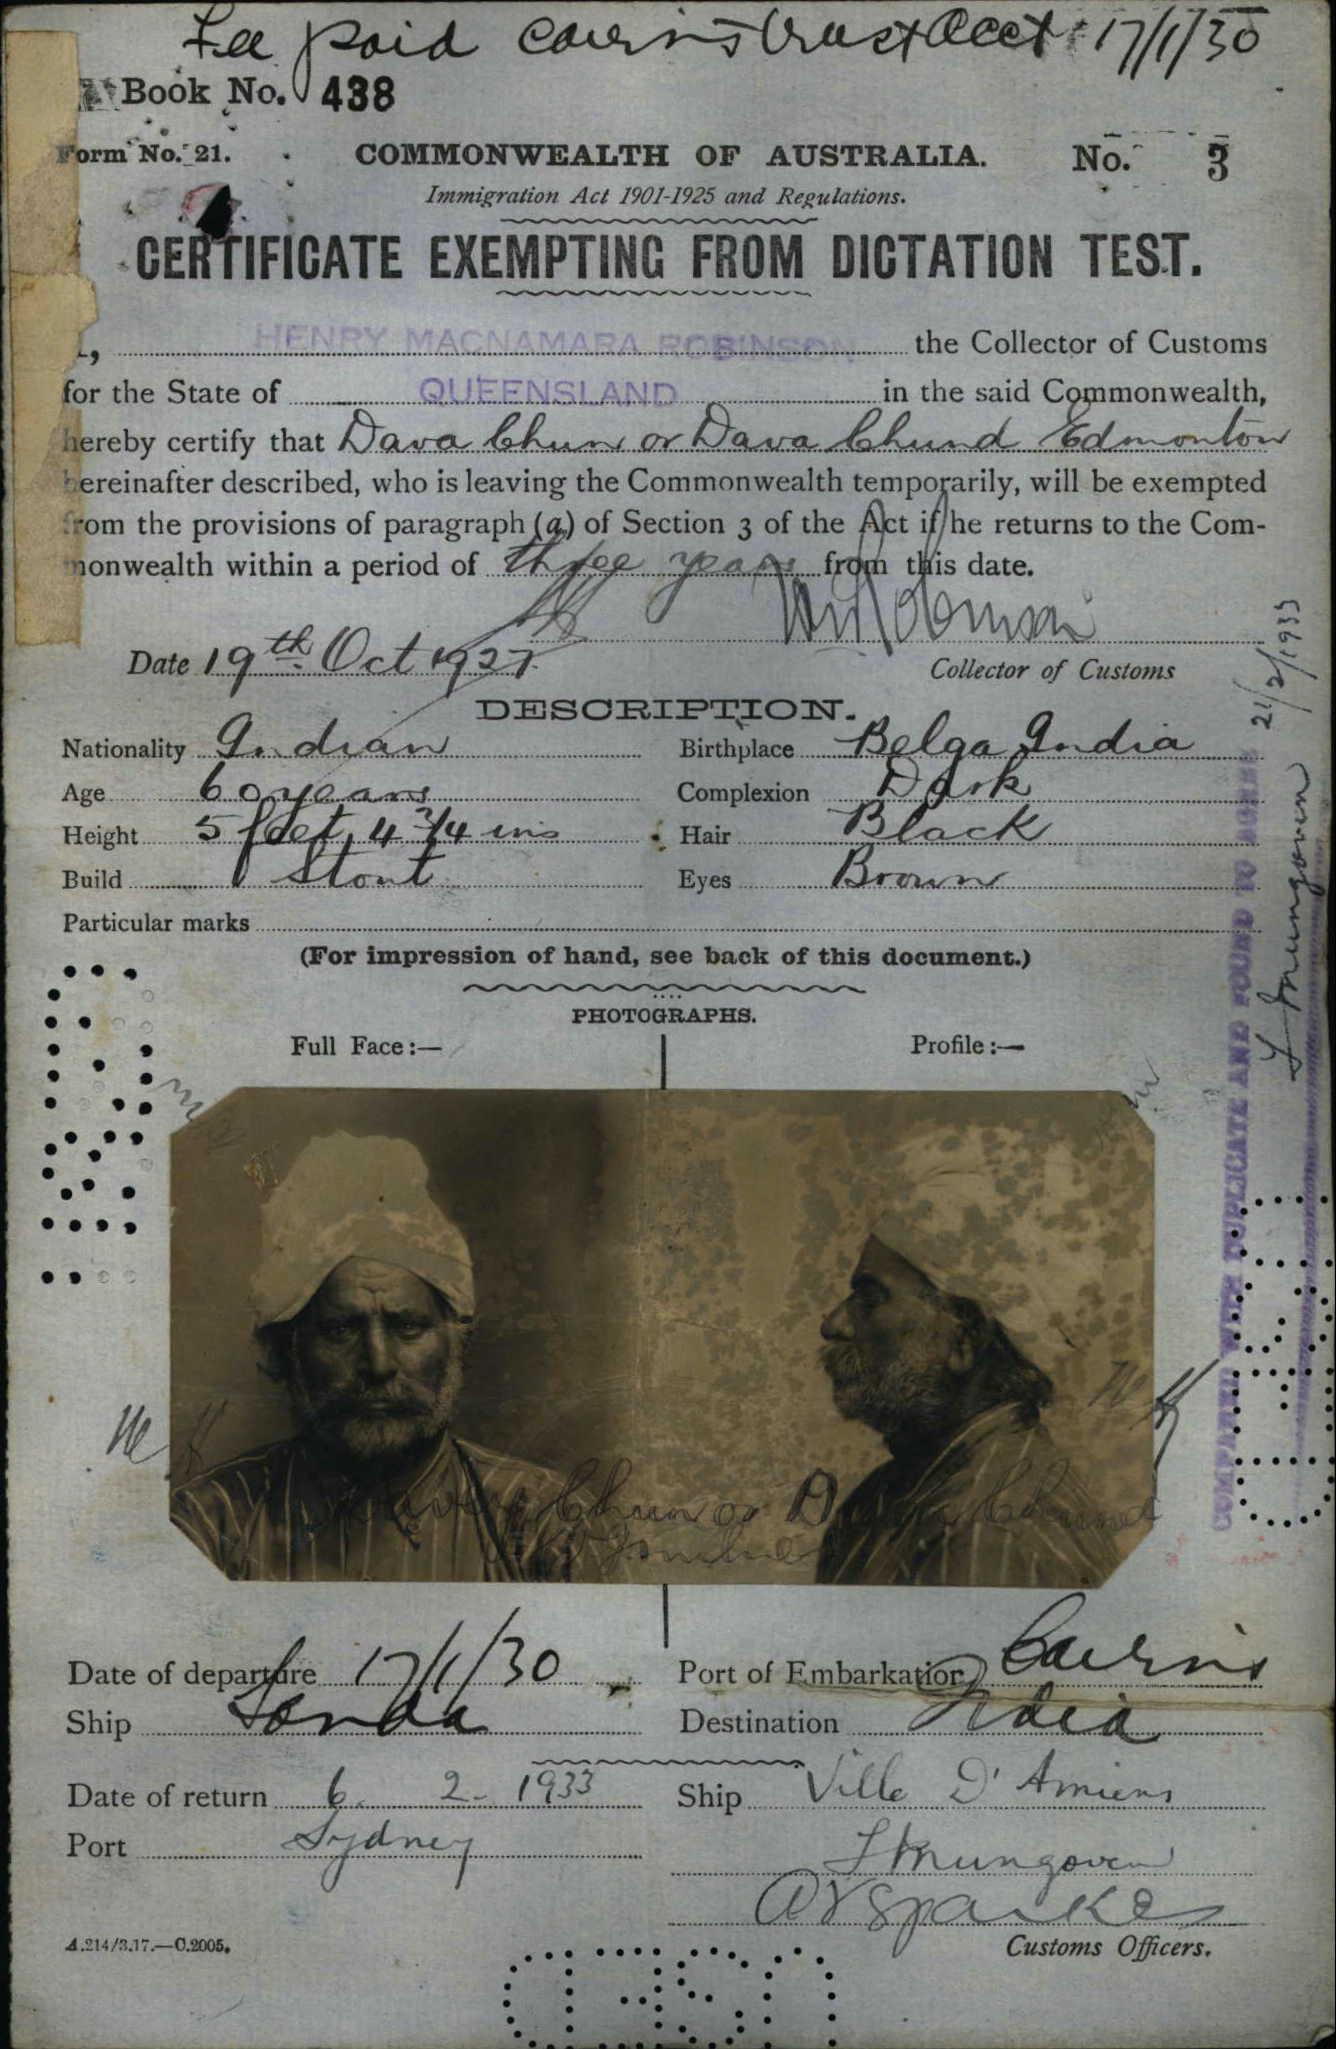 Fee paid Cairns Trust Acct 17/1/30
Book No. 438
Form No. 21.
COMMONWEALTH OF AUSTRALIA.
No. 3
Immigration Act 1901-1925 and Regulations.
CERTIFICATE EXEMPTING FROM DICTATION TEST.
HENRY MACNAMARA ROBINSON the Collector of Customs
for the State of QUEENSLAND in the said Commonwealth,
hereby certify that Dava Chun or Dava Chund Edmonton
hereinafter described, who is leaving the Commonwealth temporarily, will be exempted
from the provisions of paragraph (a) of Section 3 of the Act if he returns to the Com-
monwealth within a period of three years from this date.
Date 19th Oct 1927
Collector of Customs
DESCRIPTION.
Nationality Indian
Birthplace Belga India
Age 60 years
Complexion Dark
Height 5 feet 4 3/4 ins
Hair Black
Build Stout
Eyes Brown
Particular marks
(For impression of hand, see back of this document.)
PHOTOGRAPHS.
Full Face:—
Profile:—
Chun or Dava Chund
Date of departure 17/1/30
Port of Embarkation Cairns
Ship Tanda
Destination India
Date of return 6. 2. 1933
Ship Ville D'Amiens
Port Sydney
Customs Officers.
A.214/3.17.—C.2005.
COMPARED WITH DUPLICATE AND FOUND TO AGREE
21/2/1933
USED